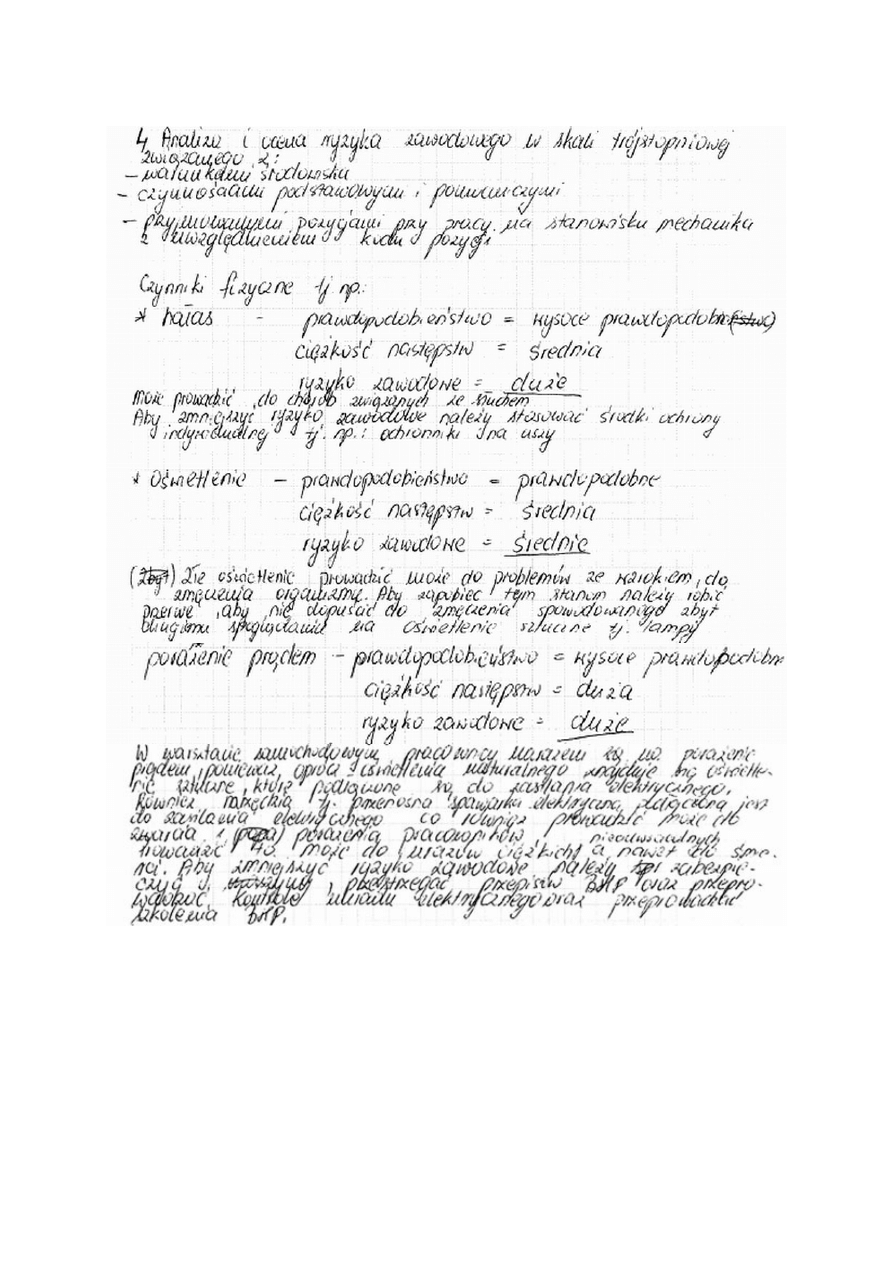 4 Analiza i ocena ryzyka zawodowego w skali trójstopniowej
związanego z:
- warunkami środowiska
- czynnościami podstawowymi i pomocniczymi
- przyjmowanymi pozycjami przy pracy na stanowisku mechanika
z uwzględnieniem kodu pozycji
Czynniki fizyczne tj np.:
* hałas - prawdopodobieństwo = wysoce prawdopodobne
ciężkość następstw = średnia
ryzyko zawodowe = duże
Może prowadzić do chorób związanych ze słuchem
Aby zmniejszyć ryzyko zawodowe należy stosować środki ochrony
indywidualnej tj. np.: ochronniki na uszy
* Oświetlenie - prawdopodobieństwo = prawdopodobne
ciężkość następstw = średnia
ryzyko zawodowe = średnie
(Zbyt) Złe oświetlenie prowadzić może do problemów ze wzrokiem, do
zmęczenia organizmu. Aby zapobiec tym stanom należy robić
przerwę, aby nie dopuścić do zmęczenia spowodowanego zbyt
długiemu spoglądaniu na oświetlenie sztuczne tj. lampy
porażenie prądem - prawdopodobieństwo = wysoce prawdopodobn
ciężkość następstw = duża
ryzyko zawodowe = duże
W warsztacie samochodowym pracownicy narażeni są na porażenie
prądem, ponieważ, oprócz oświetlenia naturalnego znajduje się oświetle-
nie sztuczne, które podłączone są do zasilania elektrycznego.
Również narzędzia tj. przenośna spawarka elektryczna, podłączona jest
do zasilania elektrycznego co również prowadzić może do
zwarcia i porażenia pracowników,
Prowadzić to może do urazów ciężkich, nieodwracalnych a nawet do śmie-
rci. Aby zmniejszyć ryzyko zawodowe należy zabezpie-
czyć, przestrzegać przepisów BHP oraz przepro-
wadzać kontrole układu elektrycznego oraz przeprowadzać
szkolenia BHP.